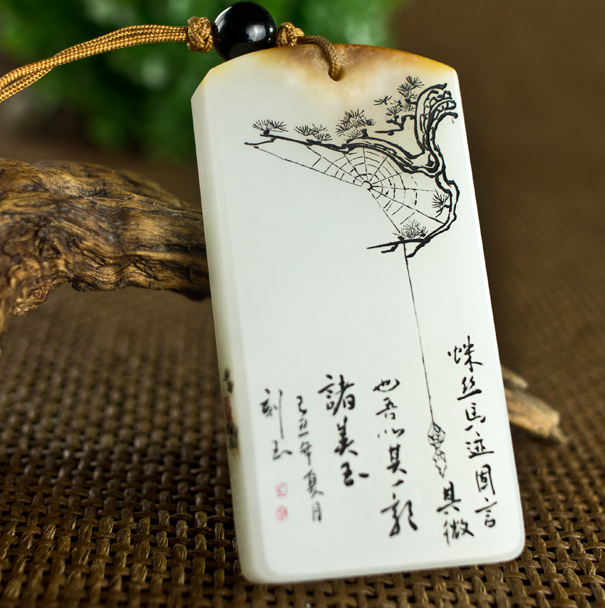 蛛丝马迹固言
其微
也吾以其一
诸美玉
己丑年夏月
刻玉